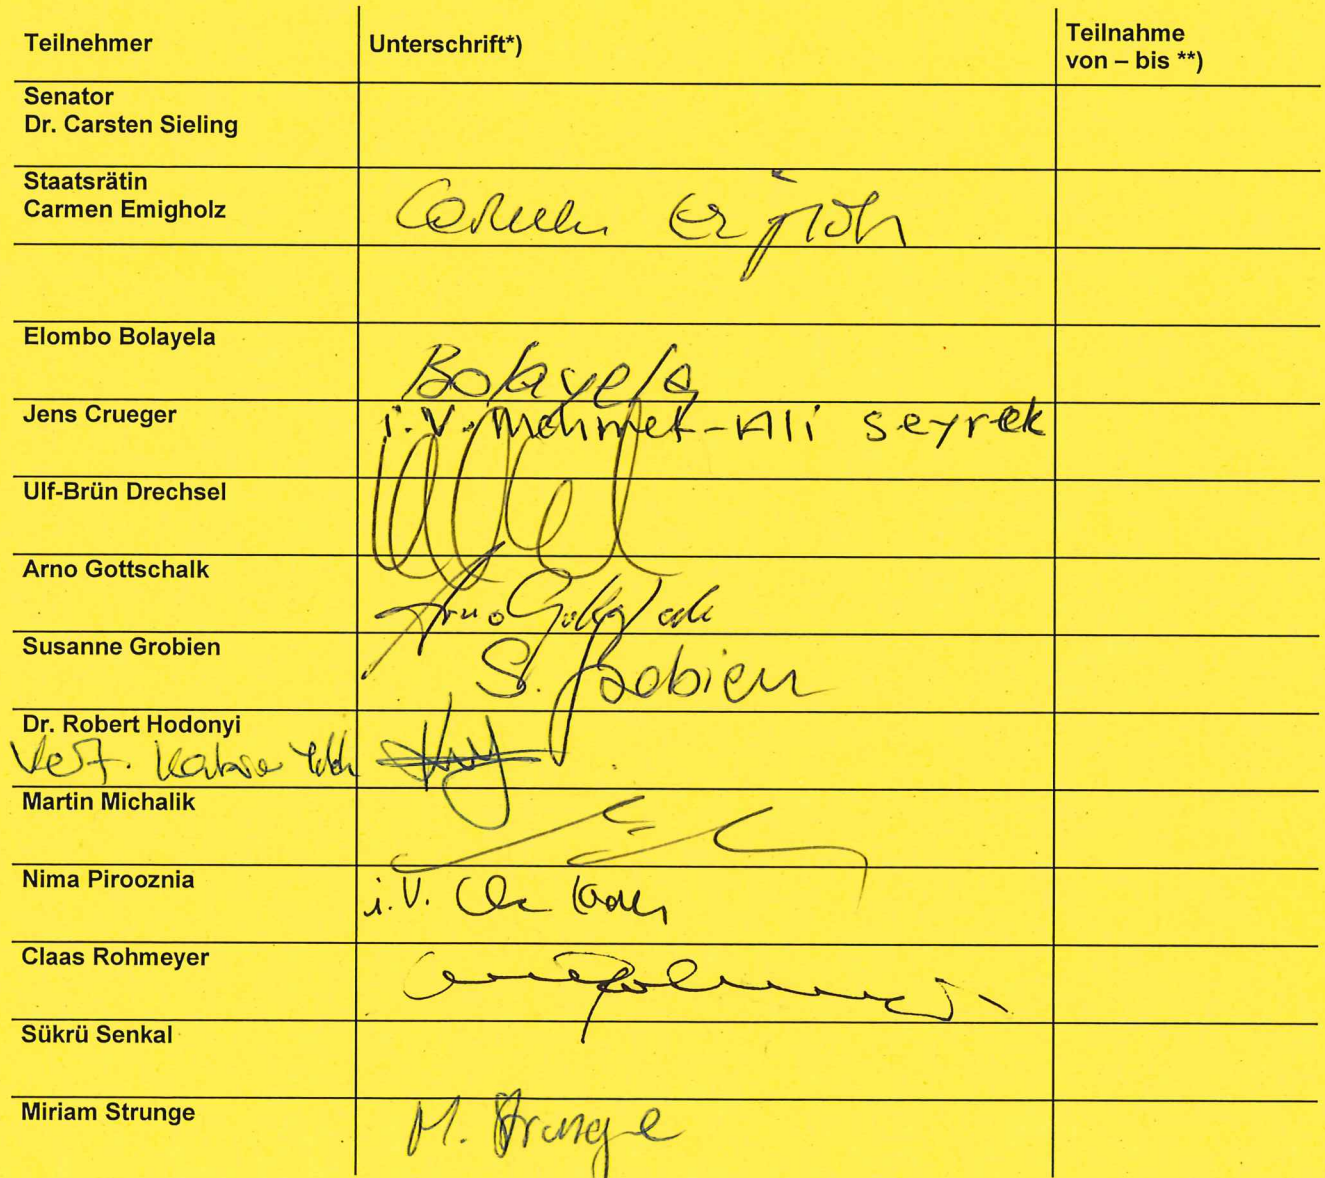 Teilnehmer
Unterschrift*)
Teilnahme
von – bis **)
Senator
Dr. Carsten Sieling
Staatsrätin
Carmen Emigholz
Carmen
Elombo Bolayela
Bolayela
Jens Crueger
i.V. Mehmet-Ali Seyrek
Ulf-Brün Drechsel
Arno Gottschalk
Arno Gottschalk
Susanne Grobien
S. Grobien
Dr. Robert Hodonyi
Martin Michalik
Nima Pirooznia
i.V.
Claas Rohmeyer
Sükrü Senkal
Miriam Strunge
M. Strunge